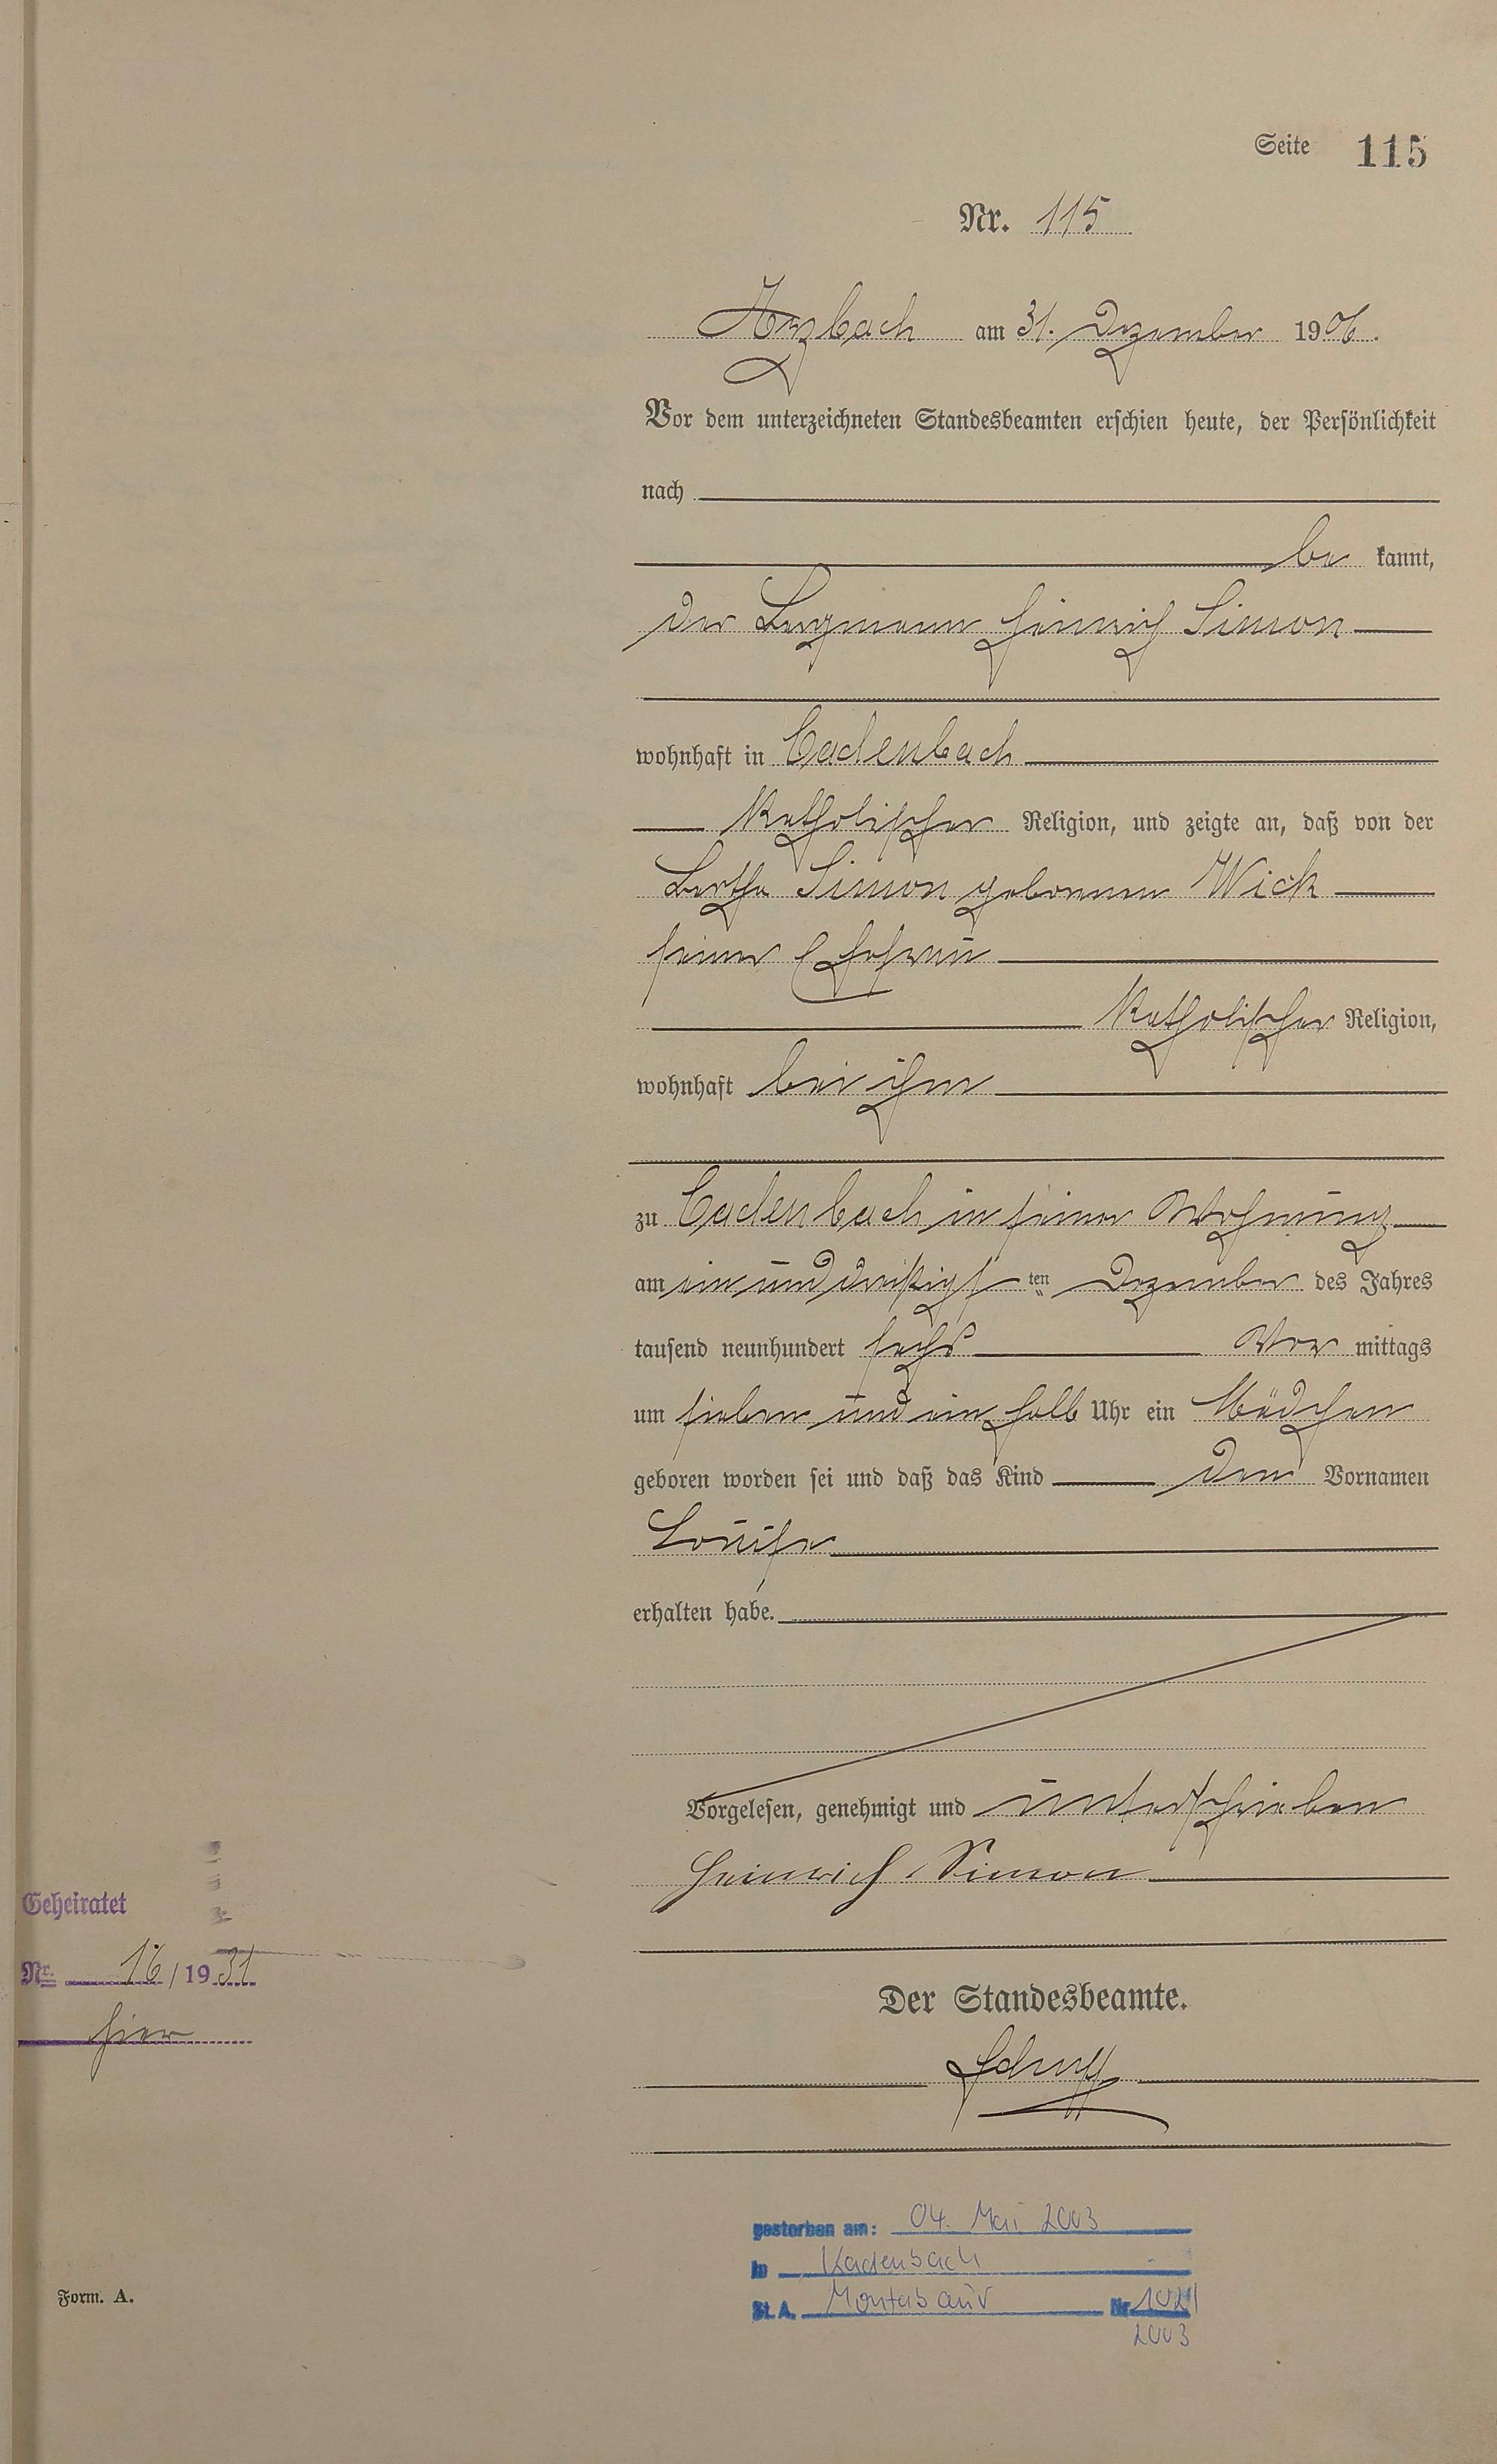 Seite 115
Nr. 115
Arzbach am 31. Dezember 1906.
Vor dem unterzeichneten Standesbeamten erschien heute, der Persönlichkeit
nach
be kannt,
der Bergmann Heinrich Simon
wohnhaft in Cadenbach
katholischer Religion, und zeigte an, daß von der
Bertha Simon geborenen Wick
seiner Ehefrau
katholischer Religion,
wohnhaft bei ihm
zu Cadenbach in seiner Wohnung
am ein und dreißigsten Dezember des Jahres
tausend neunhundert sechs Vor mittags
um sieben und ein halb Uhr ein Mädchen
geboren worden sei und daß das Kind den Vornamen
Louise
erhalten habe.
Vorgelesen, genehmigt und unterschrieben
Heinrich Simon
Geheiratet
Nr. 16/1931
hier
Der Standesbeamte.
gestorben am: 04. Mai 2003
in Kadenbach
St.A. Montabaur Nr. 102/
2003
Form. A.